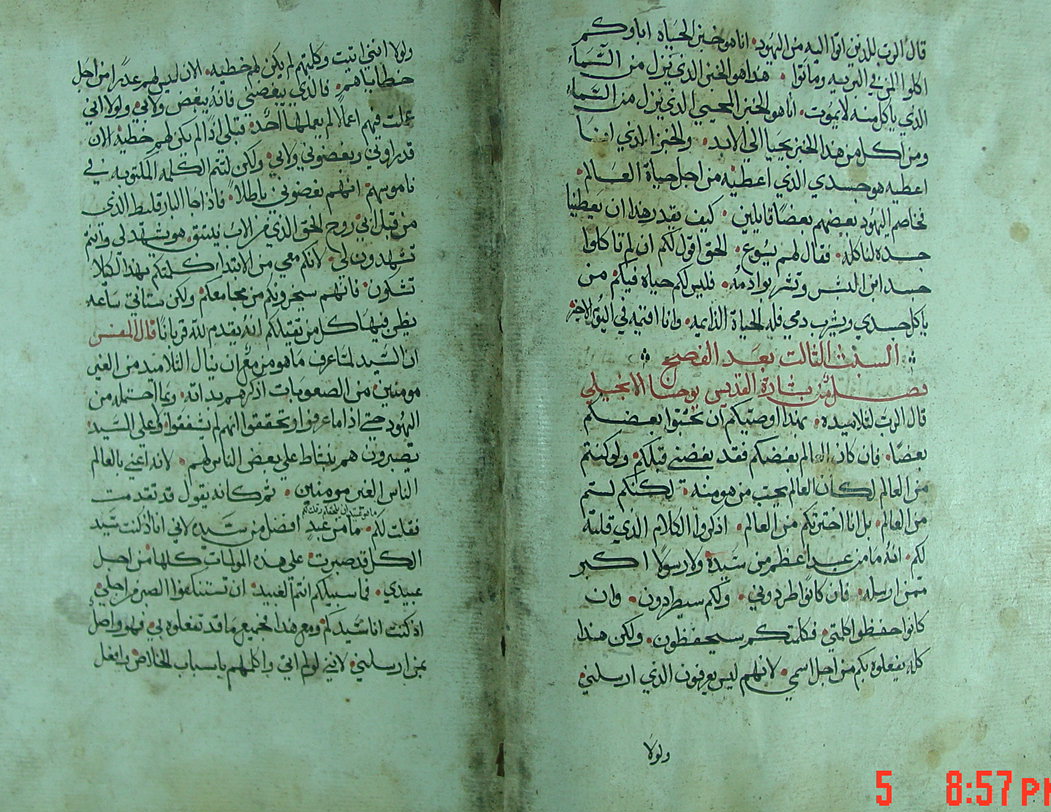 قال الرب للذين اتوا اليه من اليهود. انا هو خبز الحياة اباوكم
اكلوا المن في البريه وماتوا. هذا هو الخبز الذي نزل من السماء
الذي ياكل منه لا يموت. انا هو الخبز المحيي الذي نزل من السماء
ومن اكل من هذا الخبز يحيا الي الابد. والخبز الذي انا
اعطيه هو جسدي الذي اعطيه من اجل حياة العالم.
تخاصم اليهود بعضهم بعضا قايلين. كيف يقدر هذا ان يعطينا
جسده لناكله. فقال لهم يسوع. الحق اقول لكم ان لم تاكلوا
جسد ابن البشر وتشربوا دمه. فليس لكم حياه فيكم. من
ياكل جسدي ويشرب دمي فله الحياة الدايمه. وانا اقيمه في اليوم الاخر
السبت التالت بعد الفصح
فصل من بشارة القديس يوحنا الانجيلي
قال الرب لتلاميده. بهذا اوصيتكم ان تحبوا بعضكم
بعضا. فان كان العالم يبغضكم فقد بغضني قبلكم. ولو كنتم
من العالم لكان العالم يحب من هو منه. لكنكم لستم
من العالم. بل انا اخترتكم من العالم. اذكروا الكلام الذي قلته
لكم. انه ما من عبد اعظم من سيده ولا رسولا اكبر
ممن ارسله. فان كانوا طردوني. ولكم سيطردون. وان
كانوا حفظوا كلمتي. فكلمتكم سيحفظون. ولكن هذا
كله يفعلوه بكم من اجل اسمي. لانهم ليس يعرفون الذي ارسلني.
ولولا
ولولا انني اتيت وكلمتهم لم يكن لهم خطيه. الان ليس لهم عذرا من اجل
خطاياهم. فالذي يبغضني فانه يبغض ولابي. ولولا اني
عملت فيهم اعمالا لم يعملها احد قبلي اذا لم يكن لهم خطيه الان
قد راوني وبغضوني ولابي. ولكن لتتم الكلمه المكتوبه في
ناموسهم. انهم بغضوني باطلا. فاذا جا البارقليط الذي
من قبل ابي روح الحق الذي من الاب ينبثق. هو يشهد لي وانتم
تشهدون لي. لانكم معي من الابتدا. كلمتكم بهذا لكلا
تشكون. فانهم سيخرجونكم من مجامعكم. ولكن ستاتي ساعه
يظن فيها كل من يقتلكم انه يقدم لله قربانا قال المفسر
ان السيد لما عرف ما هو مزمع ان ينال التلاميد من الغير
مومنين من الصعوبات اذكرهم بداته. وبما احتمله من
اليهود حتي اذا ما عرفوا وتحققوا انهم لم يشفقوا علي السيد
يصبرون هم بنشاط علي بعض الناس لهم. لانه اعني بالعالم
الناس الغير مومنين. ثم كانه يقول قد تقدمت
فقلت لكم. ما من عبد افضل من سيده لاني انا اذ كنت سيد
الكل قد صبرت علي هذه المولمات كلها من اجل
عبيدي. فما سبيلكم انتم العبيد ان تستنكفوا الصبر من اجلي
اذ كنت انا سيدكم ومع هذا الجميع ما قد تفعلوه بي. فهو واصل
بمن ارسلني. لانني لو لم اتي واكلمهم باسباب الخلاص وافعل